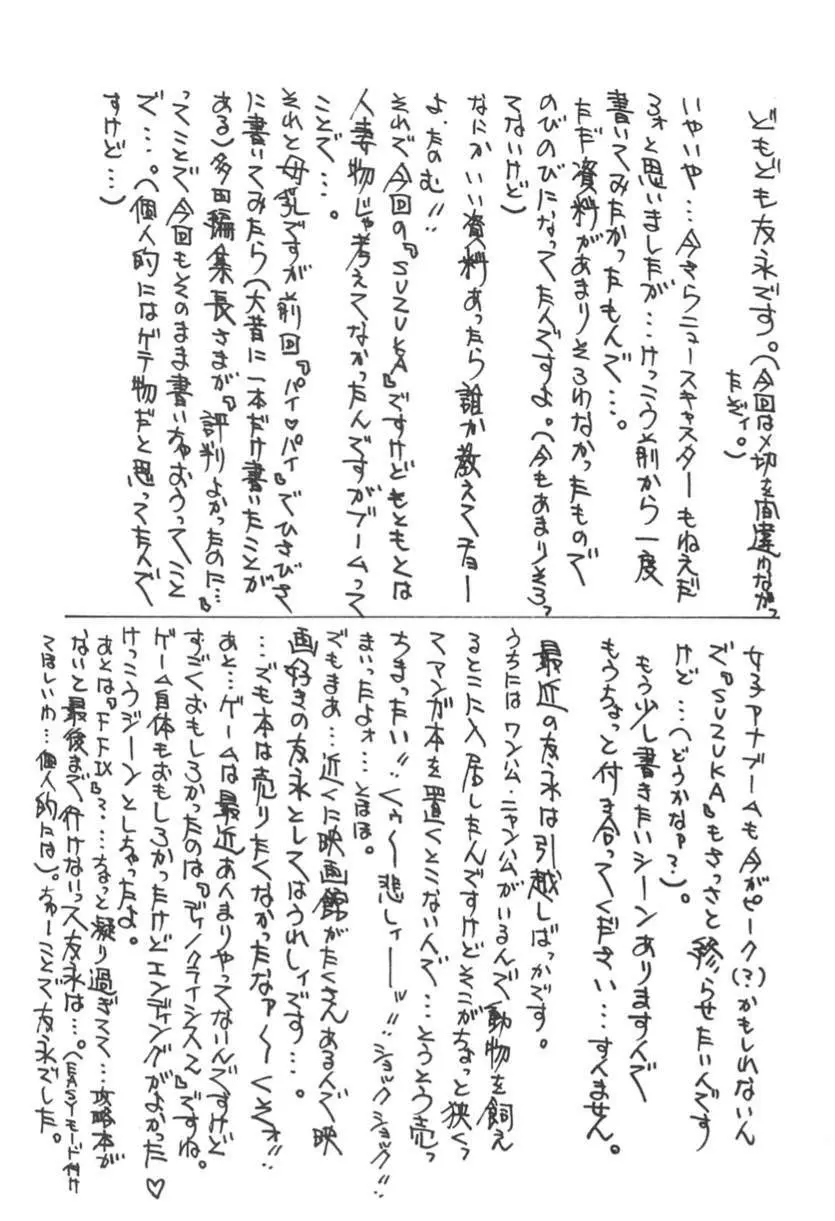 どもども友永です。(今回は〆切を間違わなかっ
たぞィ。)
いやいや…今さらニュースキャスターもねえだ
ろォと思いましたが…けっこう前から一度
書いてみたかったもんで…。
ただ資料があまりそろわなかったもので
のびのびになってたんですよ。(今もあまりそろっ
てないけど)
なにかいい資料あったら誰か教えてチョー
よ.たのむ!!
それで今回の『SUZUKA』ですけどもともとは
人妻物じゃ考えてなかったんですがブームって
ことで…。
それと母乳ですが前回『パイ♡パイ』でひさびさ
に書いてみたら(大昔に一本だけ書いたことが
ある)多田編集長さまが『評判よかったのに…』
ってことで今回もそのまま書いちゃおうってこと
で…。(個人的にはゲテ物だと思ってたんで
すけど…)
女子アナブームも今がピーク(?)かもしれないん
で『SUZUKA』もさっさと終らせたいんです
けど…(どうかなァ?…)。
もう少し書きたいシーンありますんで
もうちょっと付き合ってください…すんません。
最近の友永は引越しばっかです。
うちにはワンハム・ニャンハムがいるんで動物を飼え
るとこに入居したんですけどそこがちょっと狭くっ
てマンガ本を置くとこないんで…そうそう売っ
ちまったい!!くゥ〜悲しィーッ!!ショックショック!!
まいったよォ…とほほ。
でもまあ…近くに映画館がたくさんあるんで映
画好きの友永としてはうれしィです…。
…でも本は売りたくなかったなァ〜くそォ!!
あと…ゲームは最近あんまりやってないんですけど
すごくおもしろかったのは『ディノクライシス2』ですね。
ゲーム自体もおもしろかったけどエンディングがよかった♡
けっこうジーンとしちゃったよ。
あとは『FFIX』?…ちょっと凝り過ぎてて…攻略本が
ないと最後まで行けないっス友永は…。(EASYモード付け
てほしいわ…個人的には)。ちゅーことで友永でした。